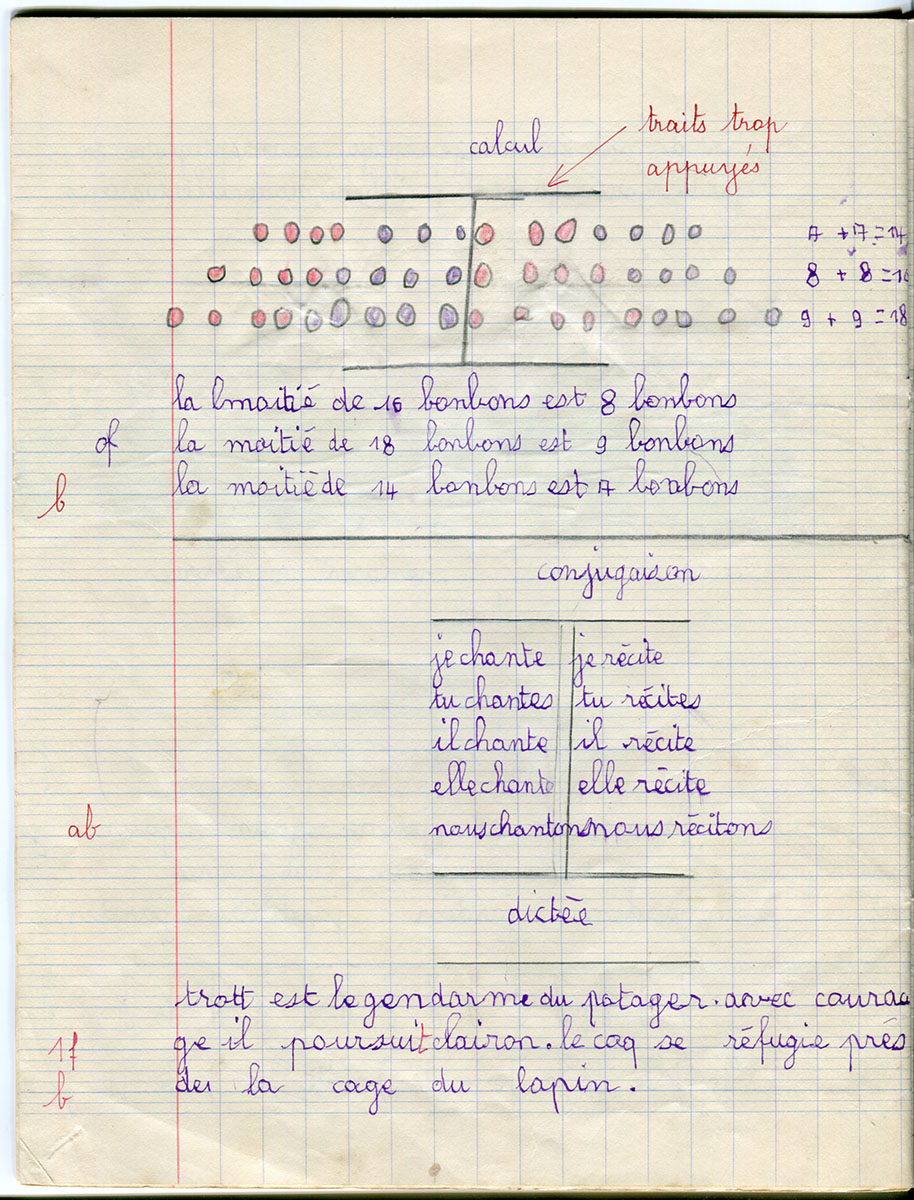 calcul
traits trop
appuyés
7 + 7 = 14
8 + 8 = 16
9 + 9 = 18
la lmoitié de 16 bonbons est 8 bonbons
of la moitié de 18 bonbons est 9 bonbons
la moitié de 14 bonbons est 7 bonbons
b
conjugaison
je chante je récite
tu chantes tu récites
il chante il récite
elle chante elle récite
ab nous chantons nous récitons
dictée
trott est le gendarme du potager. avec coura
1f ge il poursuit clairon. le coq se réfugie prés
b de la cage du lapin.